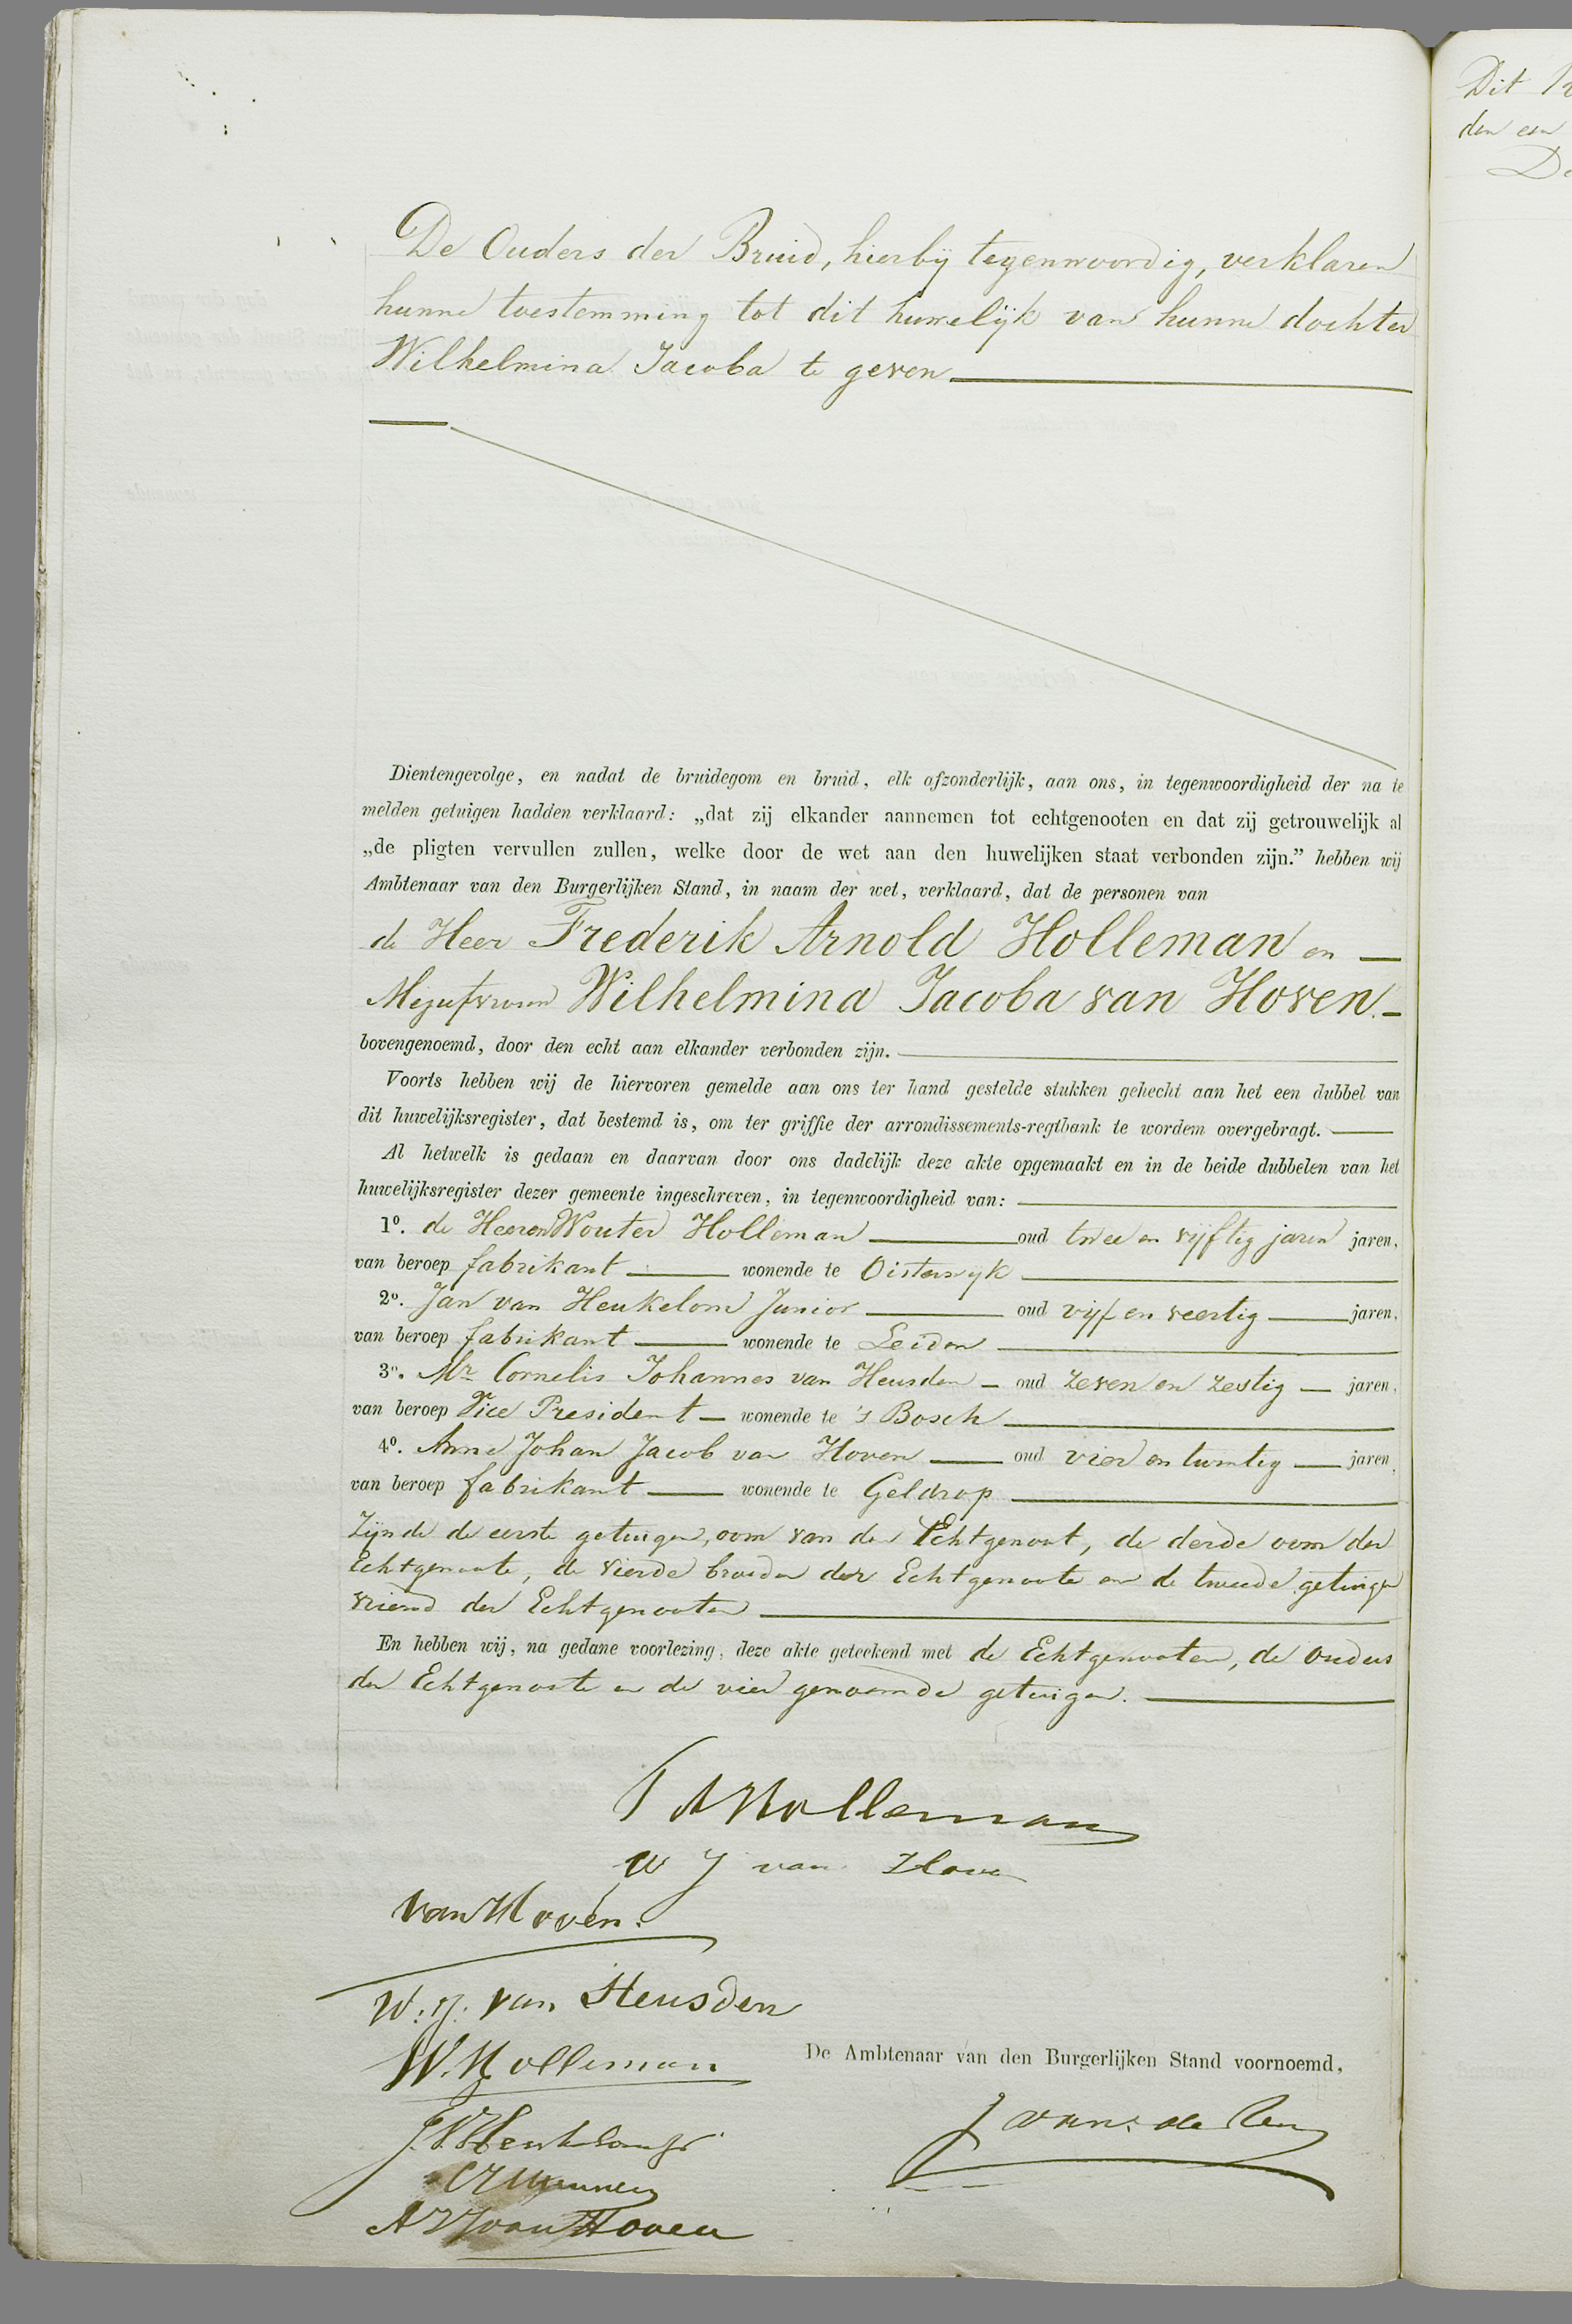 De Ouders der Bruid, hierbij tegenwoordig, verklaren
hunne toestemming tot dit huwelijk van hunne dochter
Wilhelmina Jacoba te geven
Dientengevolge, en nadat de bruidegom en bruid, elk afzonderlijk, aan ons, in tegenwoordigheid der na te
melden getuigen hadden verklaard: „dat zij elkander aannemen tot echtgenooten en dat zij getrouwelijk al
„de pligten vervullen zullen, welke door de wet aan den huwelijken staat verbonden zijn.” hebben wij
Ambtenaar van den Burgerlijken Stand, in naam der wet, verklaard, dat de personen van
de Heer Frederik Arnold Holleman en
Mejufvrouw Wilhelmina Jacoba van Hoven.
bovengenoemd, door den echt aan elkander verbonden zijn.
Voorts hebben wij de hiervoren gemelde aan ons ter hand gestelde stukken gehecht aan het een dubbel van
dit huwelijksregister, dat bestemd is, om ter griffie der arrondissements-regtbank te wordem overgebragt.
Al hetwelk is gedaan en daarvan door ons dadelijk deze akte opgemaakt en in de beide dubbelen van het
huwelijksregister dezer gemeente ingeschreven, in tegenwoordigheid van:
1º. de Heeren Wouter Holleman oud twee en vijftig jaren jaren,
van beroep fabrikant wonende te Oisterwijk
2º. Jan van Heukelom Junior oud vijf en veertig jaren,
van beroep fabrikant wonende te Leiden
3º. Mr Cornelis Johannes van Heusden oud zeven en zestig jaren,
van beroep Vice President wonende te 's Bosch
4º. Anne Johan Jacob van Hoven oud vier en twintig jaren,
van beroep fabrikant wonende te Geldrop
Zijnde de eerste getuigen, oom van den Echtgenoot, de derde oom der
Echtgenoote, de vierde broeder der Echtgenoote en de tweede getuige
vriend der Echtgenooten
En hebben wij, na gedane voorlezing, deze akte geteekend met de Echtgenooten, de ouders
der Echtgenoote en de vier genoemde getuigen.
F A Holleman
W J van Hoven
van Hoven.
W. J. van Heusden
W. Holleman
De Ambtenaar van den Burgerlijken Stand voornoemd,
J. V. Heukelom Jr
A J J van Hoven
Dit
den een